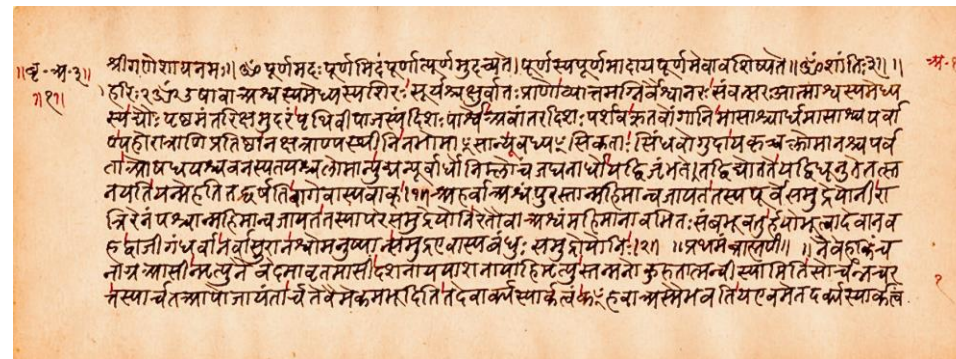 ॥बृ-अ-३॥
॥१॥
अ-१
श्रीगणेशायनमः॥ॐपूर्णमदःपूर्णमिदंपूर्णात्पूर्णमुदच्यते।पूर्णस्यपूर्णमादायपूर्णमेवावशिष्यते॥ॐशांतिः३॥॥
हरिः२ॐ३षावाअश्वस्यमेध्यस्यशिरःसूर्यश्चक्षुर्वातःप्राणोव्यात्तमग्निर्वैश्वानरःसंवत्सरःआत्माश्वस्यमेध्य
स्यद्यौःपृष्ठमंतरिक्षमुदरंपृथिवीपाजस्यंदिशःपार्श्वेअवांतरदिशःपर्शवऋतवोंगानिमासाश्चार्धमासाश्चपर्वा
ण्यहोरात्राणिप्रतिष्ठानक्षत्राण्यस्थीनिनभोमाꣳसान्यूवध्यꣳसिकताःसिंधवोगुदायकृच्चक्लोमानश्चपर्व
ताओषधयश्चवनस्पतयश्चलोमान्युद्यन्पूर्वार्धोनिम्लोचंजघनार्धोयद्विजृंभते।तद्विद्योततेयद्विधूनुतेतत्स्त
नयतियन्मेहतितद्वर्षतिवागेवास्यवाक्॥१॥अहर्वाअश्वंपुरस्तान्महिमान्वजायततस्यपूर्वेसमुद्रेयोनीरा
त्रिरेनंपश्चान्महिमान्वजायततस्यापरेसमुद्रेयोनिरेतौवाअश्वंमहिमानावभितःसंबभूवतुर्हयोभूत्वादेवानव
हद्वाजीगंधर्वानर्वासुरानश्वोमनुष्यान्समुद्रएवास्यबंधुःसमुद्रोयोनिः॥२॥॥प्रथमंब्राह्मणं॥॥नैवेहकिंच
नाग्रआसीन्मृत्युनैवेदमावृतमासीदशनाययाशनायाहिमृत्युस्तन्मनोकुरुतात्मन्वीस्यामितिसोर्चन्नचर
त्तस्यार्चतआपोजायंतार्चतेवैमेकमभूदितितदेवार्क्यस्यार्कत्वंकꣳहवाअस्मैभवतियएवमेतदर्क्यस्यार्कत्वं